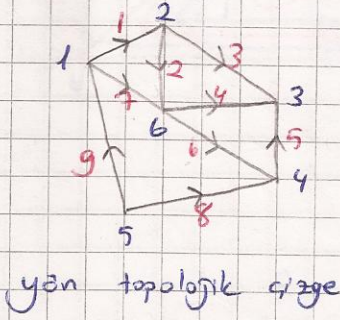 1 2
1 2 3
7 4 3
6
6 5
9 4
8
5
yön topolojik çizge